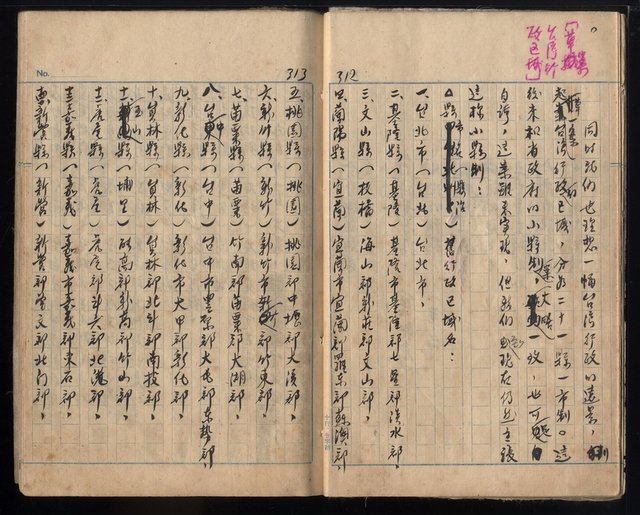 「草擬
台灣行
政區域」
同時我們也理想一幅台灣行政的遠景，
台灣行政區域，分為二十一縣一市制。這
後來和省政府的小縣制，大略一致，也可
自許，這草案未實現，但我們現在仍然主張
這樣小縣制：
縣 舊行政區域名：
一、台北市（台北）台北市，
二、基隆縣（基隆）基隆市基隆郡七星郡淡水郡，
三、文山縣（板橋）海山郡新莊郡文山郡，
四、蘭陽縣（宜蘭）宜蘭市宜蘭郡羅東郡蘇澳郡，
312
313
No.
五、桃園縣（桃園）桃園郡中壢郡大溪郡，
六、新竹縣（新竹）新竹市新竹郡竹東郡，
七、苗栗縣（苗栗）竹南郡苗栗郡大湖郡，
八、台中縣（台中）台中市豐原郡大屯郡東勢郡，
九、彰化縣（彰化）彰化市大甲郡彰化郡，
十、員林縣（員林）員林郡北斗郡南投郡，
十一、玉山縣（埔里）能高郡新高郡竹山郡，
十二、虎尾縣（虎尾）虎尾郡斗六郡北港郡，
十三、嘉義縣（嘉義）嘉義市嘉義郡東石郡，
新營縣（新營）新營郡曾文郡北門郡，